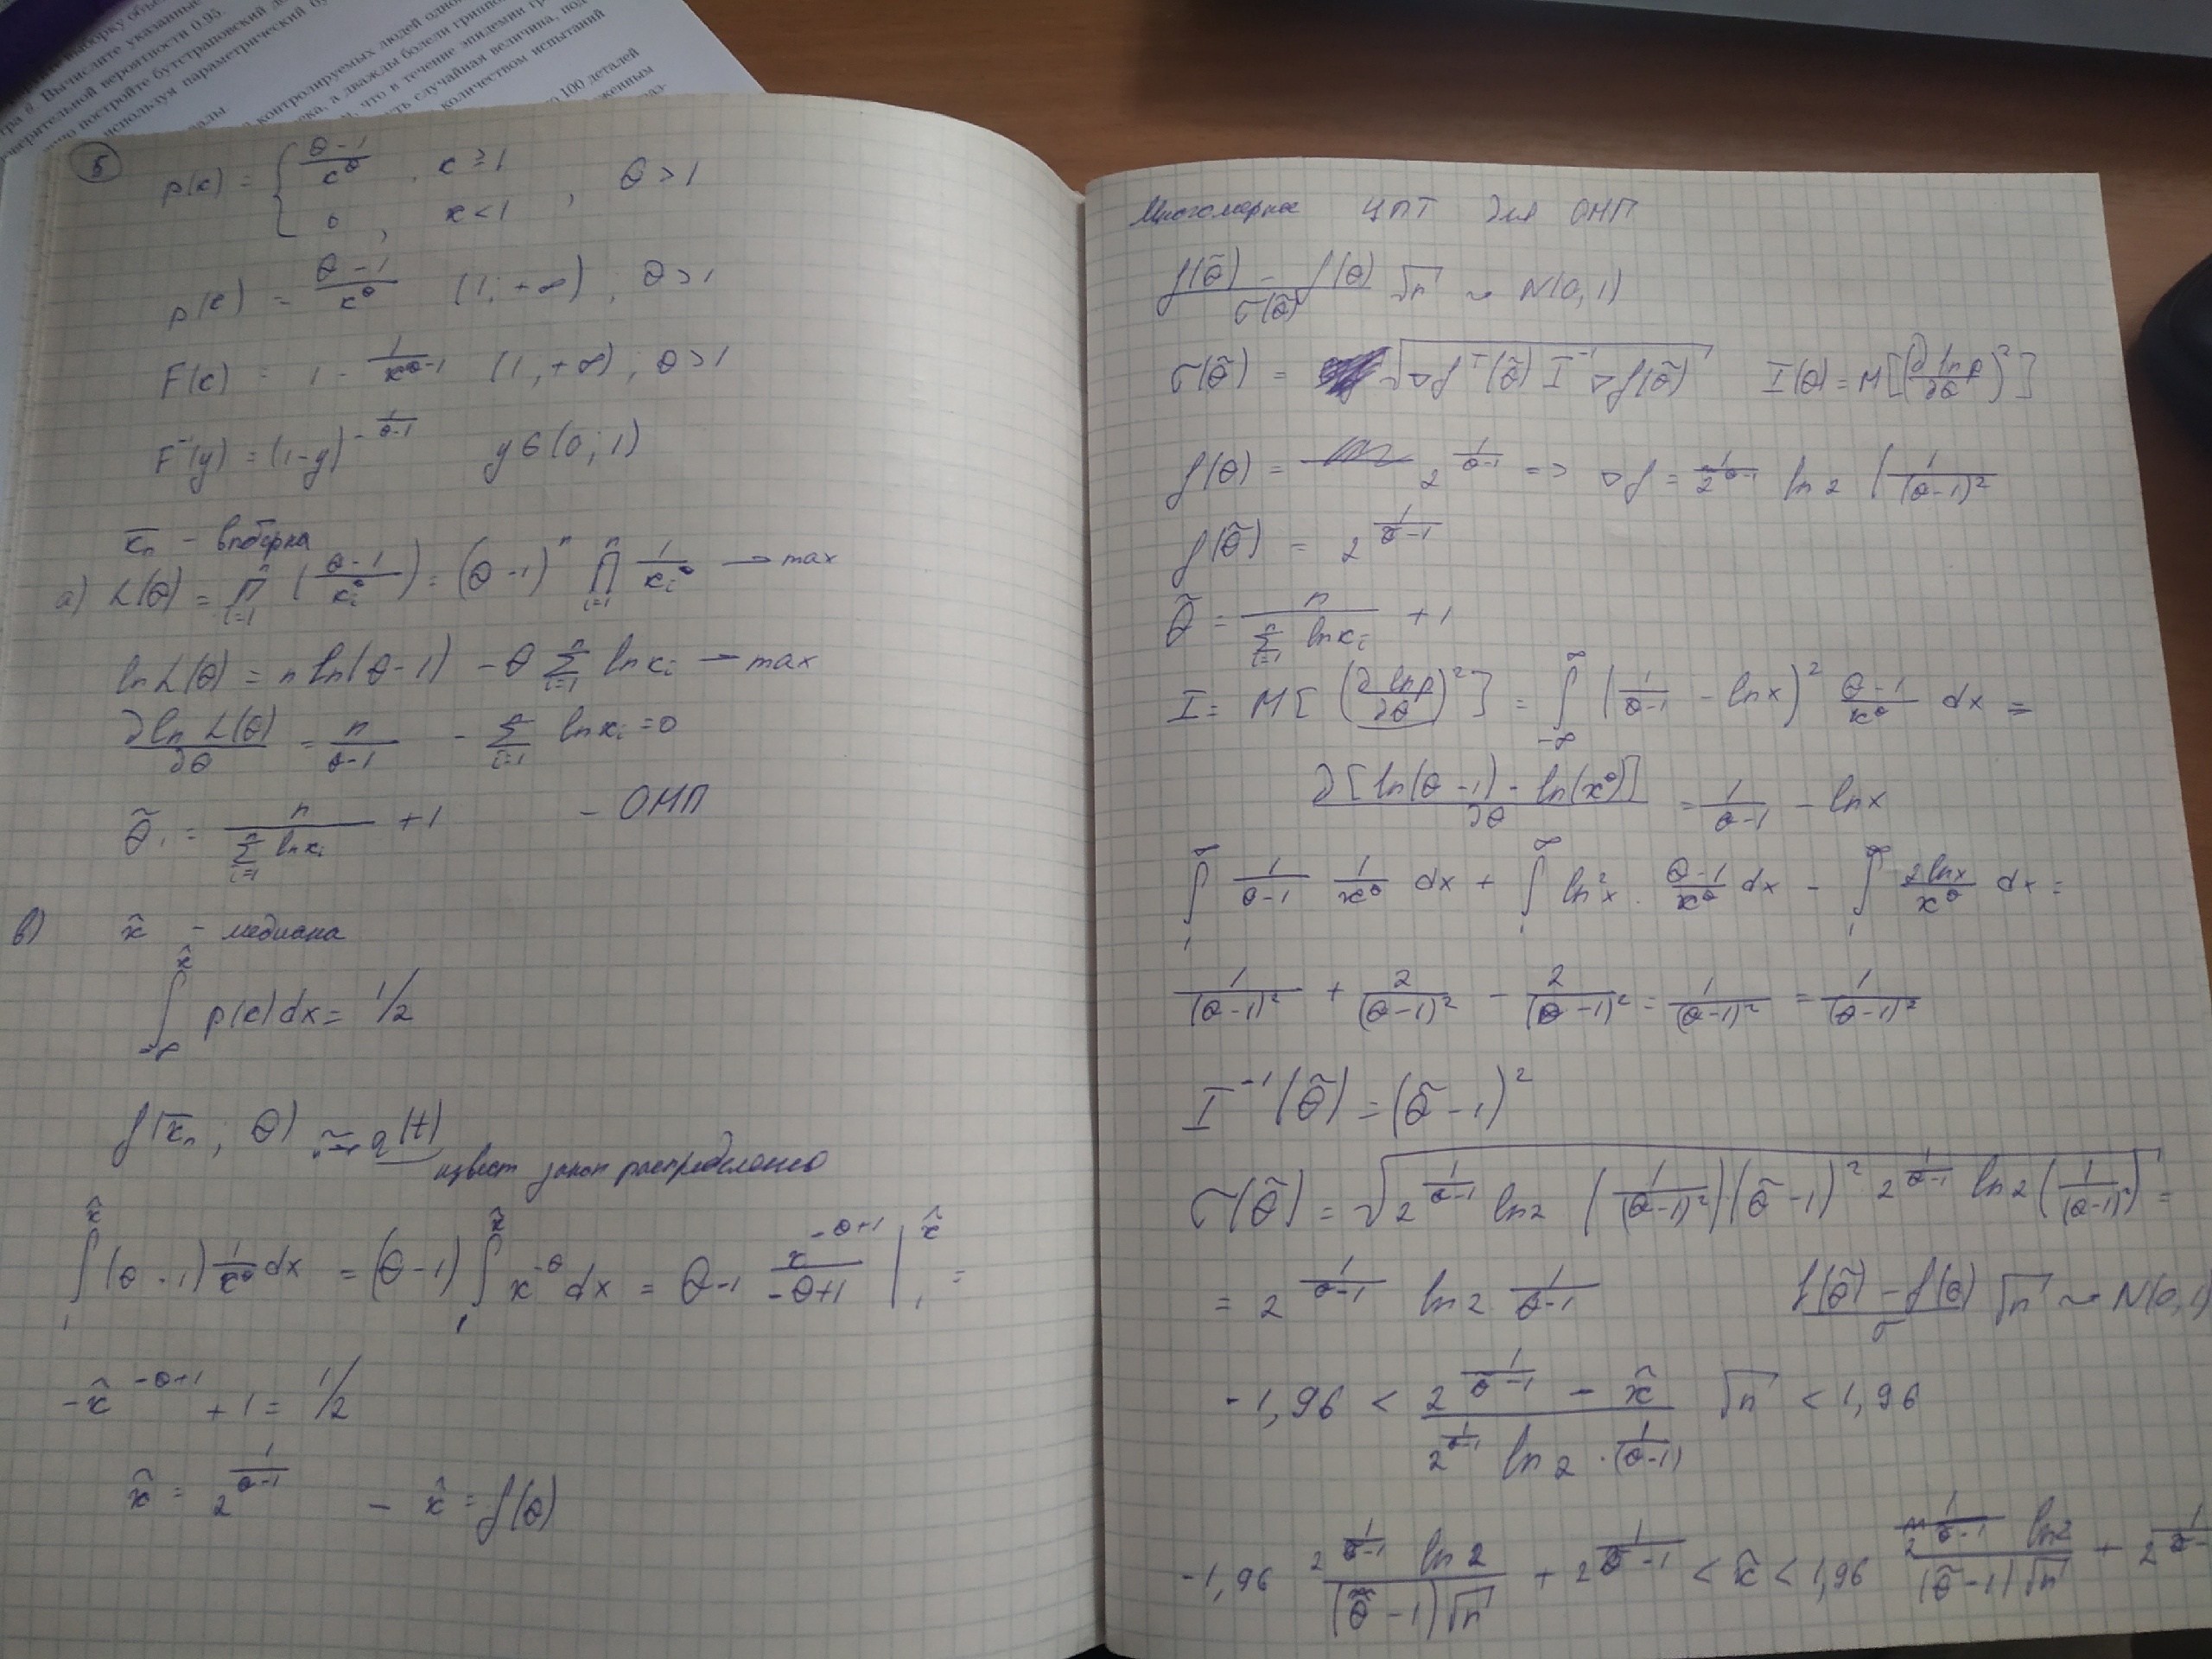 выборку объе
тра θ. Вычислите указанные
верительной вероятности 0.95.
но постройте бутстраповский до
используя параметрический бу
контролируемых людей одно
ека, а дважды болели гриппо
что в течение эпидемии гр
ть случайная величина, под
количеством испытаний
100 деталей
женным
5
p(x) = { (θ-1)/x^θ , x ≥ 1
0 , x < 1 , θ > 1
p(x) = (θ-1)/x^θ (1; +∞) ; θ > 1
F(x) = 1 - 1/x^(θ-1) (1, +∞) ; θ > 1
F⁻¹(y) = (1-y)^(-1/(θ-1)) y ∈ (0; 1)
x̄n - выборка
a) L(θ) = ∏_{i=1}^n ((θ-1)/xi^θ) = (θ-1)^n ∏_{i=1}^n 1/xi^θ → max
ln L(θ) = n ln(θ-1) - θ Σ_{i=1}^n ln xi → max
∂ ln L(θ)/∂θ = n/(θ-1) - Σ_{i=1}^n ln xi = 0
θ̃1 = n/(Σ_{i=1}^n ln xi) + 1 - ОМП
в) x̂ - медиана
∫_{-∞}^{x̂} p(x)dx = 1/2
f(x̄n, θ) ~ q(t)
извест закон распределения
∫_1^{x̂} (θ-1) 1/x^θ dx = (θ-1) ∫_1^{x̂} x^(-θ) dx = θ-1 x^(-θ+1)/(-θ+1) |_1^{x̂} =
-x̂^(-θ+1) + 1 = 1/2
x̂ = 2^(1/(θ-1)) - x̂ = f(θ)
Многомерное ЦПТ для ОМП
(f(θ̃) - f(θ))/σ(θ̃) √n ~ N(0,1)
σ(θ̃) = √(∇f^T(θ̃) I⁻¹ ∇f(θ̃)) I(θ) = M[(∂ ln p/∂θ)²]
f(θ) = 2^(1/(θ-1)) => ∇f = 2^(1/(θ-1)) ln 2 (1/(θ-1)²
f(θ̃) = 2^(1/(θ̃-1))
θ̃ = n/(Σ_{i=1}^n ln xi) + 1
I = M[(∂ ln p/∂θ)²] = ∫_{-∞}^∞ (1/(θ-1) - ln x)² (θ-1)/x^θ dx =
∂[ln(θ-1) - ln(x^θ)]/∂θ = 1/(θ-1) - ln x
∫_1^∞ 1/(θ-1) 1/x^θ dx + ∫_1^∞ ln²x · (θ-1)/x^θ dx - ∫_1^∞ 2 ln x/x^θ dx =
1/(θ-1)² + 2/(θ-1)² - 2/(θ-1)² = 1/(θ-1)² = 1/(θ-1)²
I⁻¹(θ̃) = (θ̃-1)²
σ(θ̃) = √(2^(1/(θ̃-1)) ln2 (1/(θ̃-1)²)(θ̃-1)² 2^(1/(θ̃-1)) ln2 (1/(θ̃-1)²)) =
= 2^(1/(θ̃-1)) ln2 1/(θ̃-1) (f(θ̃) - f(θ))/σ √n ~ N(0,1)
-1,96 < (2^(1/(θ̃-1)) - x̂)/(2^(1/(θ̃-1)) ln 2 · 1/(θ̃-1)) √n < 1,96
-1,96 2^(1/(θ̃-1)) ln 2/((θ̃-1)√n) + 2^(1/(θ̃-1)) < x̂ < 1,96 2^(1/(θ̃-1)) ln2/((θ̃-1)√n) + 2^(1/(θ̃-